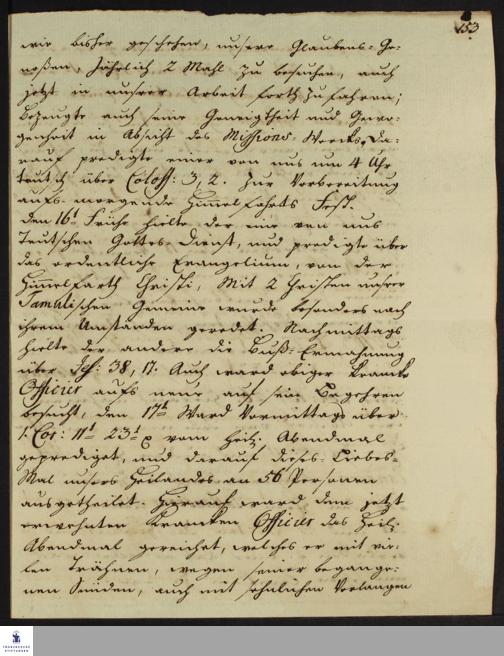 153
wir bisher geschehen, unsere Glaubens-Ge-
noßen, Jährlich 2 Mahl zu besuchen, auch
jetzt in unsrer Arbeit forthzufahren;
bezeugte auch seine Geneigtheit und Gewo-
genheit in Absicht des Missions-Wercks. Da-
rauf predigte einer von uns um 4 Uhr
teutsch über Coloss: 3, 2. Zur Vorbereitung
aufs morgende Himmelfahrts Fest.
den 16t Frühe hielte der eine von uns
Teutschen Gottes-Dienst, und predigte über
das ordentliche Evangelium, von der
Himmelfarth Christi, Mit 2 Christen unsrer
Tamulischen Gemeine wurde besonders nach
ihren Umständen geredet. Nachmittags
hielte der andere die Buß-Ermahnung
über Jes: 38, 17. Auch ward obiger krancke
Officier aufs neue auf sein Begehren
besucht, den 17t Ward Vormittags über
1. Cor: 11 23 vom Heil. Abendmal
geprediget, und darauf dieses Liebes-
Mal unsers Heilandes an 56 Personen
ausgetheilet. Hierauf ward dem jetzt
erwehnten krancken Officier das Heil:
Abendmal gereichet, welches er mit vie-
len Trähnen, wegen seiner begange-
nen Sünden, auch mit sehnlichen Verlangen
FRANCKESCHE
STIFTUNGEN